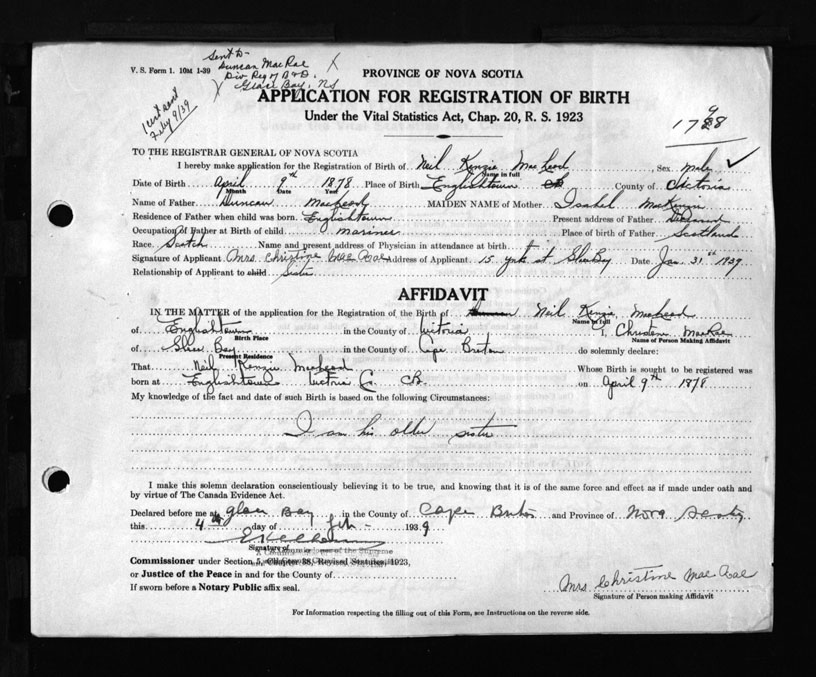 V. S. Form 1. 10M 1-39
Sent to
Duncan MacRae
Div Reg of B & D.
Glace Bay, NS
1 cert sent
Feby 9/39
PROVINCE OF NOVA SCOTIA
APPLICATION FOR REGISTRATION OF BIRTH
Under the Vital Statistics Act, Chap. 20, R. S. 1923
TO THE REGISTRAR GENERAL OF NOVA SCOTIA
I hereby make application for the Registration of Birth of Neil Kenzie MacLeod Sex male
Name in full
Date of Birth April 9th 1878 Place of Birth Englishtown CB County of Victoria
Month Date Year
Name of Father Duncan MacLeod MAIDEN NAME of Mother Isabel MacKenzie
Residence of Father when child was born. Englishtown Present address of Father Deceased
Occupation of Father at Birth of child mariner Place of birth of Father Scotland
Race. Scotch Name and present address of Physician in attendance at birth
Signature of Applicant Mrs Christine MacRae Address of Applicant 15 York st Glace Bay Date Jan. 31st 1939
Relationship of Applicant to child Sister
AFFIDAVIT
IN THE MATTER of the application for the Registration of the Birth of Neil Kenzie MacLeod
Name in full
of Englishtown in the County of Victoria I, Christene MacRae
Birth Place Name of Person Making Affidavit
of Glace Bay in the County of Cape Breton do solemnly declare:
Present Residence
That Neil Kenzie MacLeod Whose Birth is sought to be registered was
born at Englishtown Victoria Co. CB. on April 9th 1878
My knowledge of the fact and date of such Birth is based on the following Circumstances:
I am his older sister
I make this solemn declaration conscientiously believing it to be true, and knowing that it is of the same force and effect as if made under oath and
by virtue of The Canada Evidence Act.
Declared before me at Glace Bay in the County of Cape Breton and Province of Nova Scotia
this 4th day of Feb- 1939
Signature
Commissioner under Section 5, Chapter 38, Revised Statutes, 1923,
or Justice of the Peace in and for the County of
If sworn before a Notary Public affix seal.
Mrs Christine MacRae
Signature of Person making Affidavit
For Information respecting the filling out of this Form, see Instructions on the reverse side.